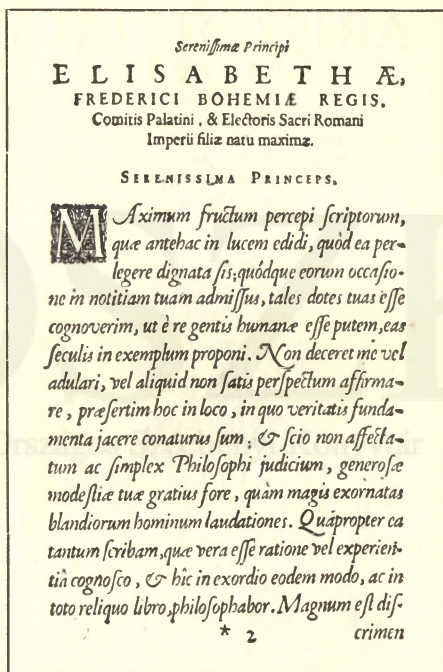 Sereniſſimæ Principi
ELISABETHÆ,
FREDERICI BOHEMIÆ REGIS,
Comitis Palatini, & Electoris Sacri Romani
Imperii filiæ natu maximæ.
SERENISSIMA PRINCEPS,
MAximum fructum percepi ſcriptorum,
quæ antehac in lucem edidi, quòd ea per-
legere dignata ſis; quódque eorum occaſio-
ne in notitiam tuam admiſſus, tales dotes tuas eſſe
cognoverim, ut è re gentis humanæ eſſe putem, eas
ſeculis in exemplum proponi. Non deceret me vel
adulari, vel aliquid non ſatis perſpectum affirma-
re, præſertim hoc in loco, in quo veritatis funda-
menta jacere conaturus ſum; & ſcio non affecta-
tum ac ſimplex Philoſophi judicium, generoſæ
modeſtiæ tuæ gratius fore, quàm magis exornatas
blandiorum hominum laudationes. Quapropter ea
tantum ſcribam, quæ vera eſſe ratione vel experien-
tiâ cognoſco, & hîc in exordio eodem modo, ac in
toto reliquo libro, philoſophabor. Magnum eſt diſ-
* 2 crimen